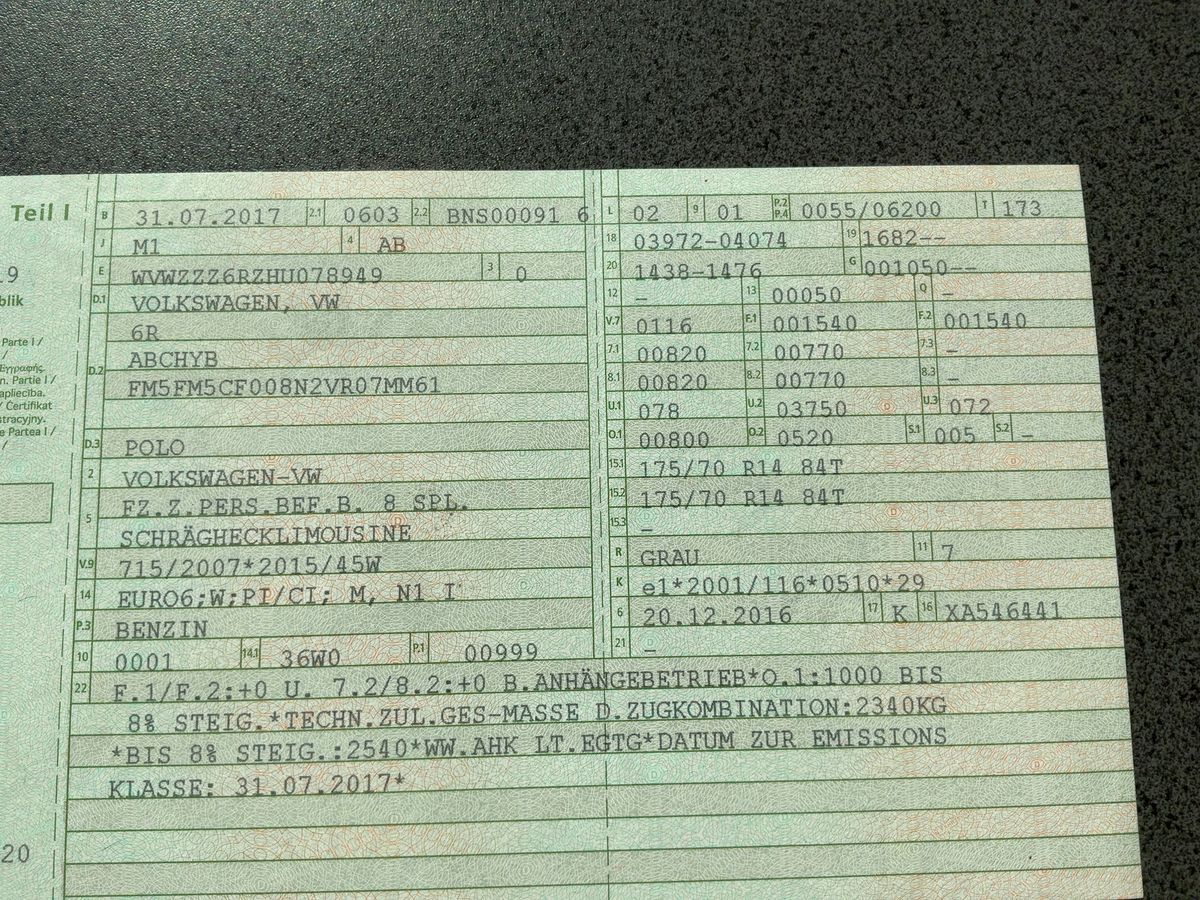 Teil I
.9
blik
Parte I /
/
Εγγραφής.
n. Partie I /
apliecība.
/ Certifikat
stracyjny.
e Partea I /
/
20
B 31.07.2017 2.1 0603 2.2 BNS00091 6
J M1 4 AB
E WVWZZZ6RZHU078949 3 0
D.1 VOLKSWAGEN, VW
6R
D.2 ABCHYB
FM5FM5CF008N2VR07MM61
D.3 POLO
2 VOLKSWAGEN-VW
5 FZ.Z.PERS.BEF.B. 8 SPL.
SCHRÄGHECKLIMOUSINE
V.9 715/2007*2015/45W
14 EURO6;W;PI/CI; M, N1 I
P.3 BENZIN
10 0001 14.1 36W0 P.1 00999
L 02 9 01 P.2 P.4 0055/06200 T 173
18 03972-04074 19 1682--
20 1438-1476 G 001050--
12 – 13 00050 Q –
V.7 0116 F.1 001540 F.2 001540
7.1 00820 7.2 00770 7.3 –
8.1 00820 8.2 00770 8.3 –
U.1 078 U.2 03750 U.3 072
O.1 00800 O.2 0520 S.1 005 S.2 –
15.1 175/70 R14 84T
15.2 175/70 R14 84T
15.3 –
R GRAU 11 7
K e1*2001/116*0510*29
6 20.12.2016 17 K 16 XA546441
21 –
22 F.1/F.2:+0 U. 7.2/8.2:+0 B.ANHÄNGEBETRIEB*O.1:1000 BIS
8% STEIG.*TECHN.ZUL.GES-MASSE D.ZUGKOMBINATION:2340KG
*BIS 8% STEIG.:2540*WW.AHK LT.EGTG*DATUM ZUR EMISSIONS
KLASSE: 31.07.2017*